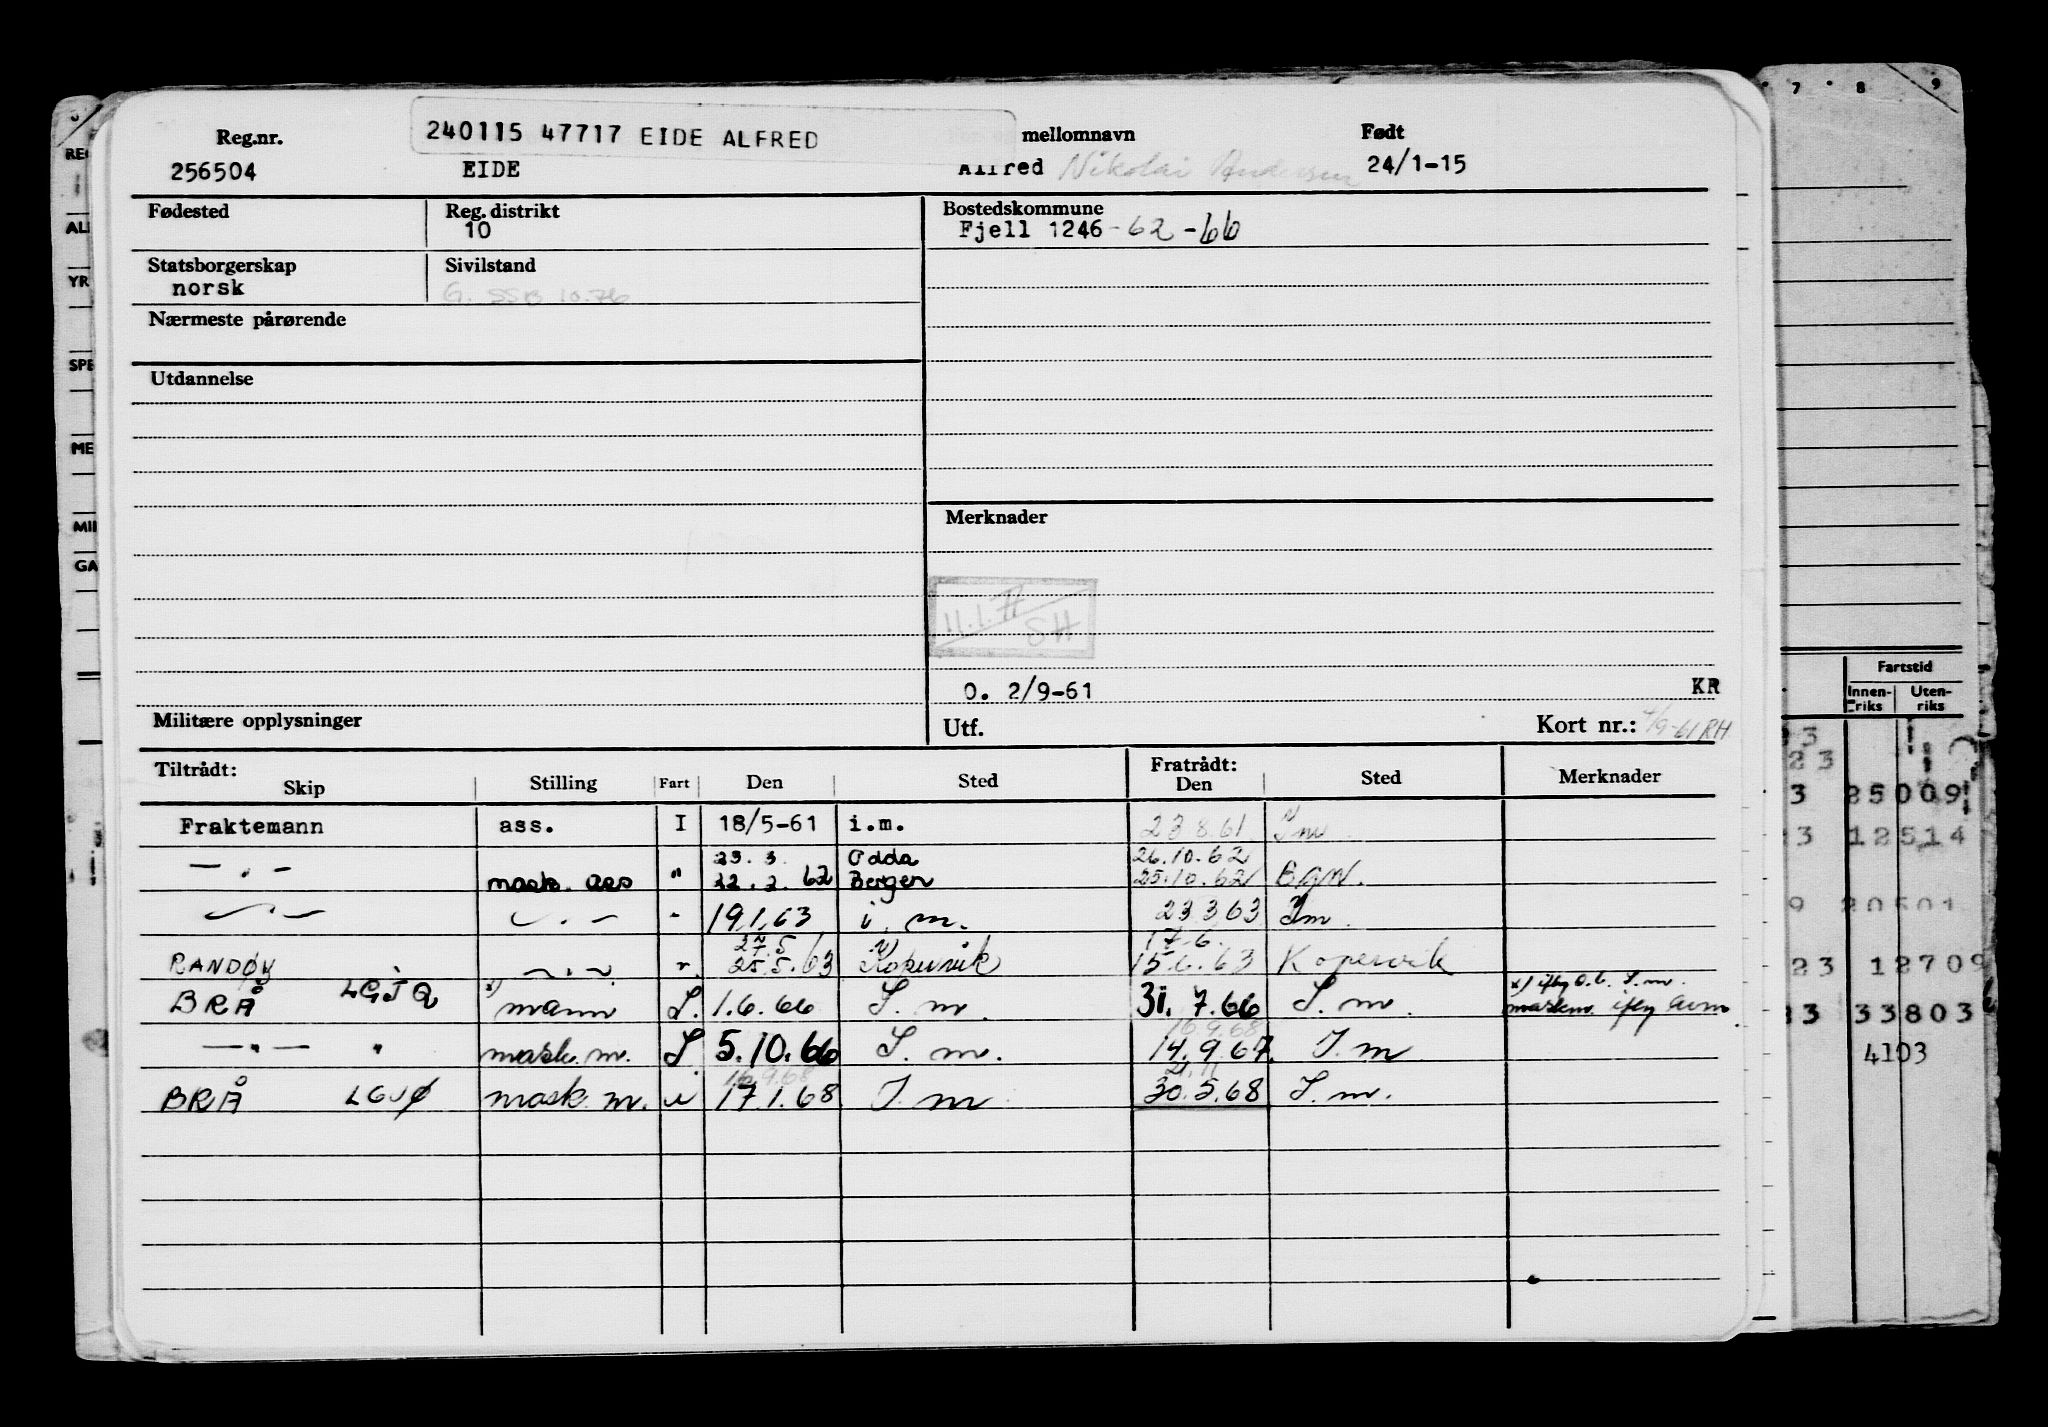 Reg.nr. 240115 47717 EIDE ALFRED mellomnavn Født
256504 EIDE Alfred Nikolai Andersen 24/1-15
Fødested Reg. distrikt Bostedskommune
10 Fjell 1246 - 62 - 66
Statsborgerskap Sivilstand
norsk G. SSB 10.76
Nærmeste pårørende
Utdannelse
Merknader
SH
O. 2/9-61 KR
Militære opplysninger Utf. Kort nr.: 4/9-61 RH
Tiltrådt: Fratrådt:
Skip Stilling Fart Den Sted Den Sted Merknader
Fraktemann ass. I 18/5-61 i.m. 23 8.61 Im
23. 3. Odda 26.10.62
— " — mask. ass " 22. 2. 62 Bergen 25.10.62 Bgn.
— " — — " — " 19.1.63 i. m. 23 3 63 Im
27. 5 17.6.
RANDØY — " — " 25.5.63 Kopervik 15.6.63 Kopervik
x) iflg o.b. I.m.
BRÅ LGJQ x) mann I. 1.6.66 I. m. 31. 7.66 I. m. maskm. iflg
16.9.68
— " — " mask. m. I 5.10.66 I. m. 14.9.67. I. m
16.9.68 21.11
BRÅ LGJØ mask. m. u 17.1.68 I. m 30.5.68 I. m.
REG
AL
YR
SPE
ME
MIL
GA
7 8 9
Fartstid
Innen-riks Uten-riks
23
3 25009
3 12514
9 20501
23 12709
3 33803
4103